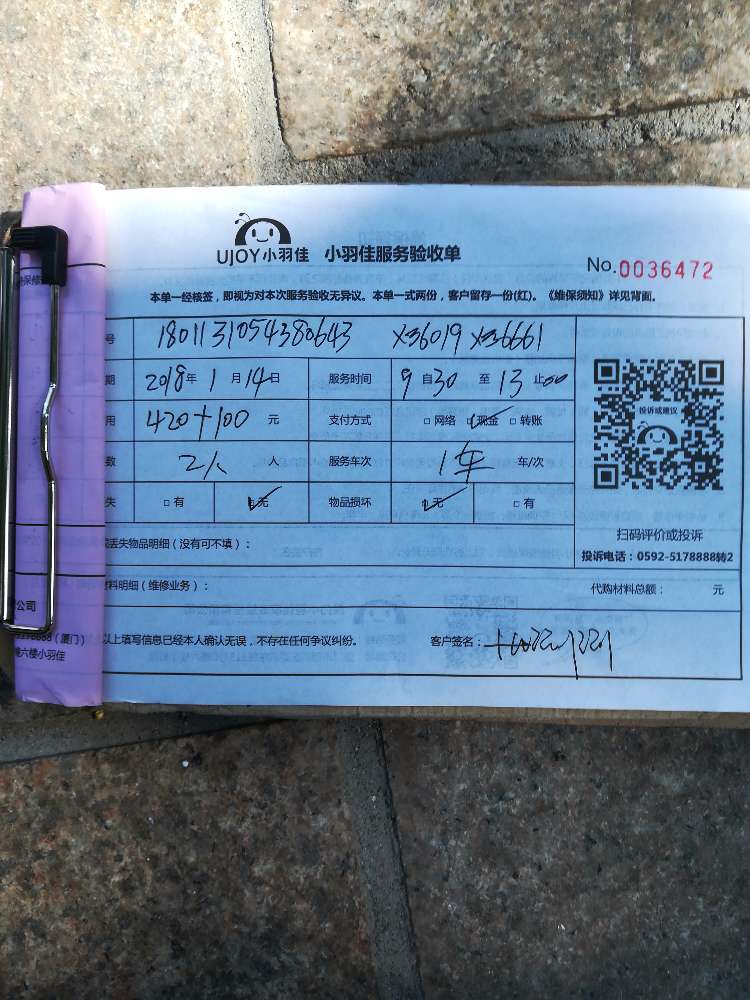 UJOY小羽佳 小羽佳服务验收单
No.0036472
本单一经核签，即视为对本次服务验收无异议。本单一式两份，客户留存一份(红)。《维保须知》详见背面。
号 1801131054380643 X36019 X36661
期 2018年 1月14日 服务时间 9自30 至 13止00
用 420+100 元 支付方式 □网络 □现金 □转账
数 2人 人 服务车次 1车 车/次
失 □有 □无 物品损坏 □无 □有
投诉或建议
扫码评价或投诉
投诉电话：0592-5178888转2
丢失物品明细（没有可不填）：
料明细（维修业务）： 代购材料总额： 元
公司
（厦门）
六楼小羽佳
以上填写信息已经本人确认无误，不存在任何争议纠纷。 客户签名：